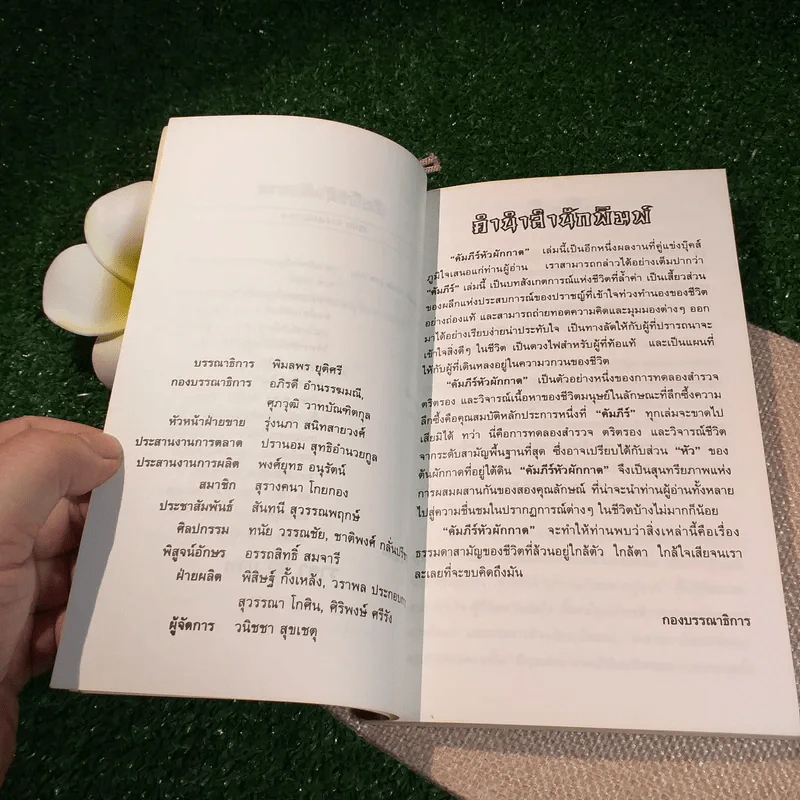 บรรณาธิการ พิมลพร ยุติศรี
กองบรรณาธิการ อภิรดี อำนรรฆมณี,
ศุภวุฒิ วาทบัณฑิตกุล
หัวหน้าฝ่ายขาย รุ่งนภา สนิทสายวงค์
ประสานงานการตลาด ปรานอม สุทธิอำนวยกูล
ประสานงานการผลิต พงศ์ยุทธ อนุรัตน์
สมาชิก สุรางคนา โกยกอง
ประชาสัมพันธ์ สันทนี สุวรรณพฤกษ์
ศิลปกรรม ทนัย วรรณชัย, ชาติพงศ์
พิสูจน์อักษร อรรถสิทธิ์ สมจารี
ฝ่ายผลิต พิสิษฐ์ กั้งเหลัง, วราพล
สุวรรณา โกศิน, ศิริพงษ์ ศรีรัง
ผู้จัดการ วนิชชา สุขเชตุ
คำนำสำนักพิมพ์
“คัมภีร์หัวผักกาด” เล่มนี้เป็นอีกหนึ่งผลงานที่คู่แข่งบุ๊คส์
ภูมิใจเสนอแก่ท่านผู้อ่าน เราสามารถกล่าวได้อย่างเต็มปากว่า
“คัมภีร์” เล่มนี้ เป็นบทสังเกตการณ์แห่งชีวิตที่ล้ำค่า เป็นเสี้ยวส่วน
ของผลึกแห่งประสบการณ์ของปราชญ์ที่เข้าใจท่วงทำนองของชีวิต
อย่างถ่องแท้ และสามารถถ่ายทอดความคิดและมุมมองต่างๆ ออก
มาได้อย่างเรียบง่ายน่าประทับใจ เป็นทางลัดให้กับผู้ที่ปรารถนาจะ
เข้าใจสิ่งดีๆ ในชีวิต เป็นดวงไฟสำหรับผู้ที่ท้อแท้ และเป็นแผนที่
ให้กับผู้ที่เดินหลงอยู่ในความวกวนของชีวิต
“คัมภีร์หัวผักกาด” เป็นตัวอย่างหนึ่งของการทดลองสำรวจ
ตริตรอง และวิจารณ์เนื้อหาของชีวิตมนุษย์ในลักษณะที่ลึกซึ้งความ
ลึกซึ้งคือคุณสมบัติหลักประการหนึ่งที่ “คัมภีร์” ทุกเล่มจะขาดไป
เสียมิได้ ทว่า นี่คือการทดลองสำรวจ ตริตรอง และวิจารณ์ชีวิต
จากระดับสามัญพื้นฐานที่สุด ซึ่งอาจเปรียบได้กับส่วน “หัว” ของ
ต้นผักกาดที่อยู่ใต้ดิน “คัมภีร์หัวผักกาด” จึงเป็นสุนทรียภาพแห่ง
การผสมผสานกันของสองคุณลักษณ์ ที่น่าจะนำท่านผู้อ่านทั้งหลาย
ไปสู่ความชื่นชมในปรากฏการณ์ต่างๆ ในชีวิตบ้างไม่มากก็น้อย
“คัมภีร์หัวผักกาด” จะทำให้ท่านพบว่าสิ่งเหล่านี้คือเรื่อง
ธรรมดาสามัญของชีวิตที่ล้วนอยู่ใกล้ตัว ใกล้ตา ใกล้ใจเสียจนเรา
ละเลยที่จะขบคิดถึงมัน
กองบรรณาธิการ